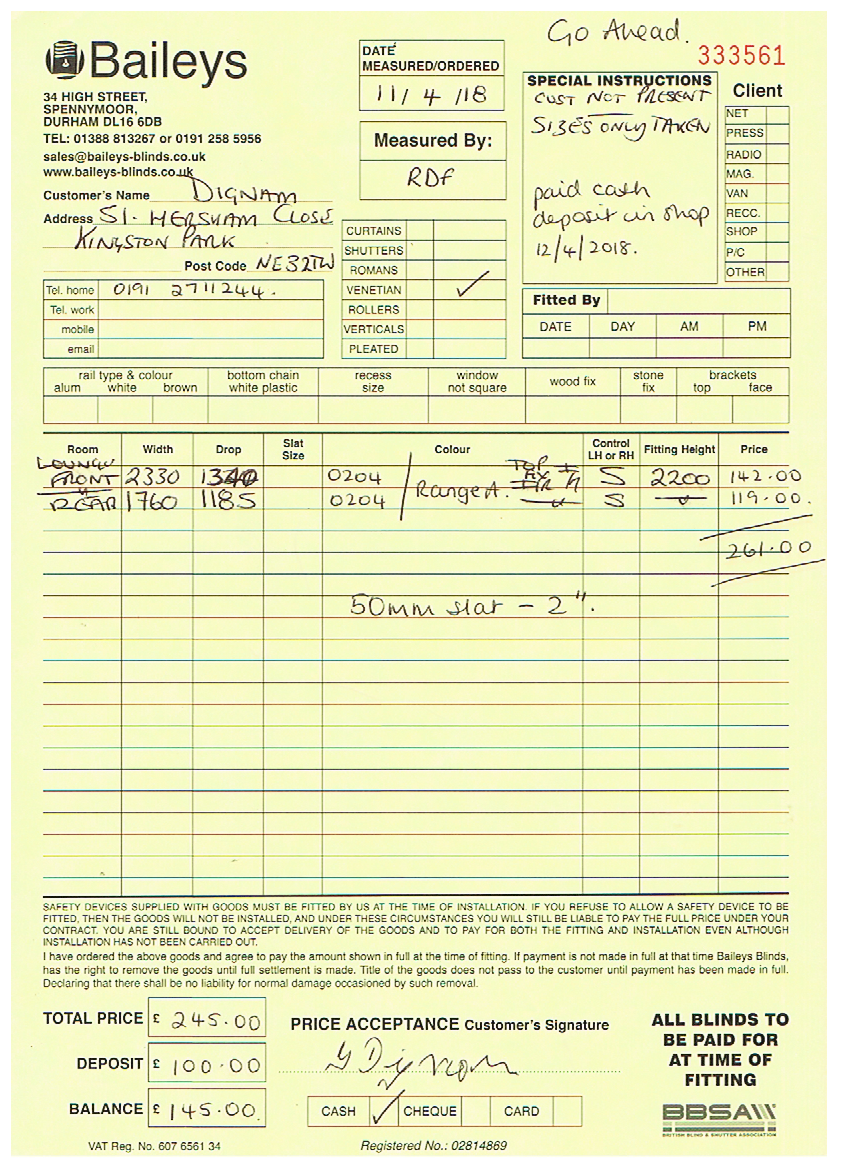 Go Ahead.
333561
Baileys
34 HIGH STREET,
SPENNYMOOR,
DURHAM DL16 6DB
TEL: 01388 813267 or 0191 258 5956
sales@baileys-blinds.co.uk
www.baileys-blinds.co.uk
Customer's Name DIGNAM
Address 51. HERSHAM CLOSE
KINGSTON PARK
Post Code NE32TW
Tel. home 0191 2711244.
Tel. work
mobile
email
DATE
MEASURED/ORDERED
11/4/18
Measured By:
RDF
CURTAINS
SHUTTERS
ROMANS
VENETIAN ✓
ROLLERS
VERTICALS
PLEATED
SPECIAL INSTRUCTIONS
CUST NOT PRESENT
SIZES ONLY TAKEN
paid cash
deposit in shop
12/4/2018.
Client
NET
PRESS
RADIO
MAG.
VAN
RECC.
SHOP
P/C
OTHER
Fitted By
DATE DAY AM PM
rail type & colour bottom chain recess window wood fix stone brackets
alum white brown white plastic size not square fix top face
Room Width Drop Slat Size Colour Control LH or RH Fitting Height Price
LOUNGE
FRONT 2330 1340 0204 Range A. TOP S 2200 142.00
REAR 1760 1185 0204 S 119.00.
261.00
50mm slat - 2".
SAFETY DEVICES SUPPLIED WITH GOODS MUST BE FITTED BY US AT THE TIME OF INSTALLATION. IF YOU REFUSE TO ALLOW A SAFETY DEVICE TO BE
FITTED, THEN THE GOODS WILL NOT BE INSTALLED, AND UNDER THESE CIRCUMSTANCES YOU WILL STILL BE LIABLE TO PAY THE FULL PRICE UNDER YOUR
CONTRACT. YOU ARE STILL BOUND TO ACCEPT DELIVERY OF THE GOODS AND TO PAY FOR BOTH THE FITTING AND INSTALLATION EVEN ALTHOUGH
INSTALLATION HAS NOT BEEN CARRIED OUT.
I have ordered the above goods and agree to pay the amount shown in full at the time of fitting. If payment is not made in full at that time Baileys Blinds,
has the right to remove the goods until full settlement is made. Title of the goods does not pass to the customer until payment has been made in full.
Declaring that there shall be no liability for normal damage occasioned by such removal.
TOTAL PRICE £ 245.00
DEPOSIT £ 100.00
BALANCE £ 145.00.
PRICE ACCEPTANCE Customer's Signature
CASH ✓ CHEQUE CARD
ALL BLINDS TO
BE PAID FOR
AT TIME OF
FITTING
BBSA
BRITISH BLIND & SHUTTER ASSOCIATION
VAT Reg. No. 607 6561 34
Registered No.: 02814869